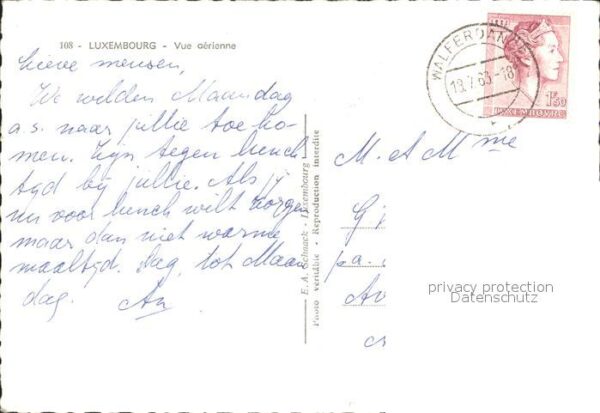 108 - LUXEMBOURG - Vue aérienne
Lieve mensen,
We wilden Maandag
a.s. naar jullie toe ko-
men. Zijn tegen lunch
tyd bij jullie. Als jij
nu voor lunch wilt zorgen
maar dan niet warme
maaltyd. Dag, tot Maan
dag. An
E. A. Schaack - Luxembourg
Photo véritable - Reproduction interdite
WALFERDANGE
18.7.63-18
1F50
LUXEMBOURG
M. et Mme
G
p.a.
Av
privacy protection
Datenschutz